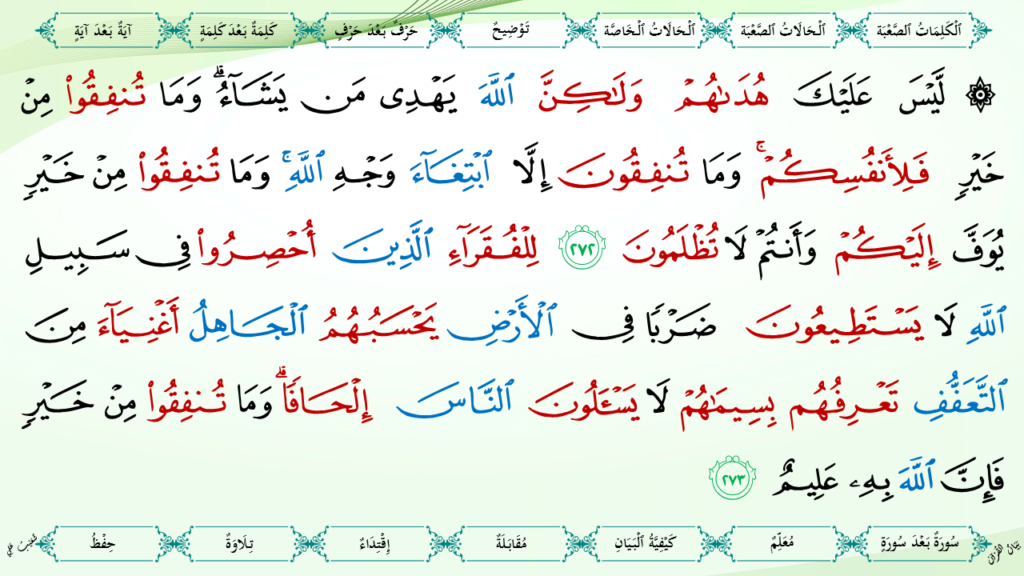 اَلْكَلِمَاتُ الصَّعْبَة
اَلْحَالَاتُ الصَّعْبَة
اَلْحَالَاتُ الْخَاصَّة
تَوْضِيحٌ
حَرْفٌ بَعْدَ حَرْفٍ
كَلِمَةٌ بَعْدَ كَلِمَةٍ
آيَةٌ بَعْدَ آيَةٍ
۞ لَّيْسَ عَلَيْكَ هُدَىٰهُمْ وَلَٰكِنَّ ٱللَّهَ يَهْدِى مَن يَشَآءُ ۗ وَمَا تُنفِقُوا۟ مِنْ
خَيْرٍ فَلِأَنفُسِكُمْ ۚ وَمَا تُنفِقُونَ إِلَّا ٱبْتِغَآءَ وَجْهِ ٱللَّهِ ۚ وَمَا تُنفِقُوا۟ مِنْ خَيْرٍ
يُوَفَّ إِلَيْكُمْ وَأَنتُمْ لَا تُظْلَمُونَ ٢٧٢ لِلْفُقَرَآءِ ٱلَّذِينَ أُحْصِرُوا۟ فِى سَبِيلِ
ٱللَّهِ لَا يَسْتَطِيعُونَ ضَرْبًا فِى ٱلْأَرْضِ يَحْسَبُهُمُ ٱلْجَاهِلُ أَغْنِيَآءَ مِنَ
ٱلتَّعَفُّفِ تَعْرِفُهُم بِسِيمَٰهُمْ لَا يَسْـَٔلُونَ ٱلنَّاسَ إِلْحَافًا ۗ وَمَا تُنفِقُوا۟ مِنْ خَيْرٍ
فَإِنَّ ٱللَّهَ بِهِۦ عَلِيمٌ ٢٧٣
سُورَةٌ بَعْدَ سُورَةٍ
مُعَلِّمٌ
كَيْفِيَّةُ الْبَيَانِ
مُقَابَلَةٌ
إِقْتِدَاءٌ
تِلَاوَةٌ
حِفْظٌ